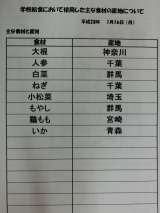 学校給食において使用した主な食材の産地について
平成28年 5月16日（月）
主な食材と産地
食材 産地
大根 神奈川
人参 千葉
白菜 群馬
ねぎ 千葉
小松菜 埼玉
もやし 群馬
鶏もも 宮崎
いか 青森